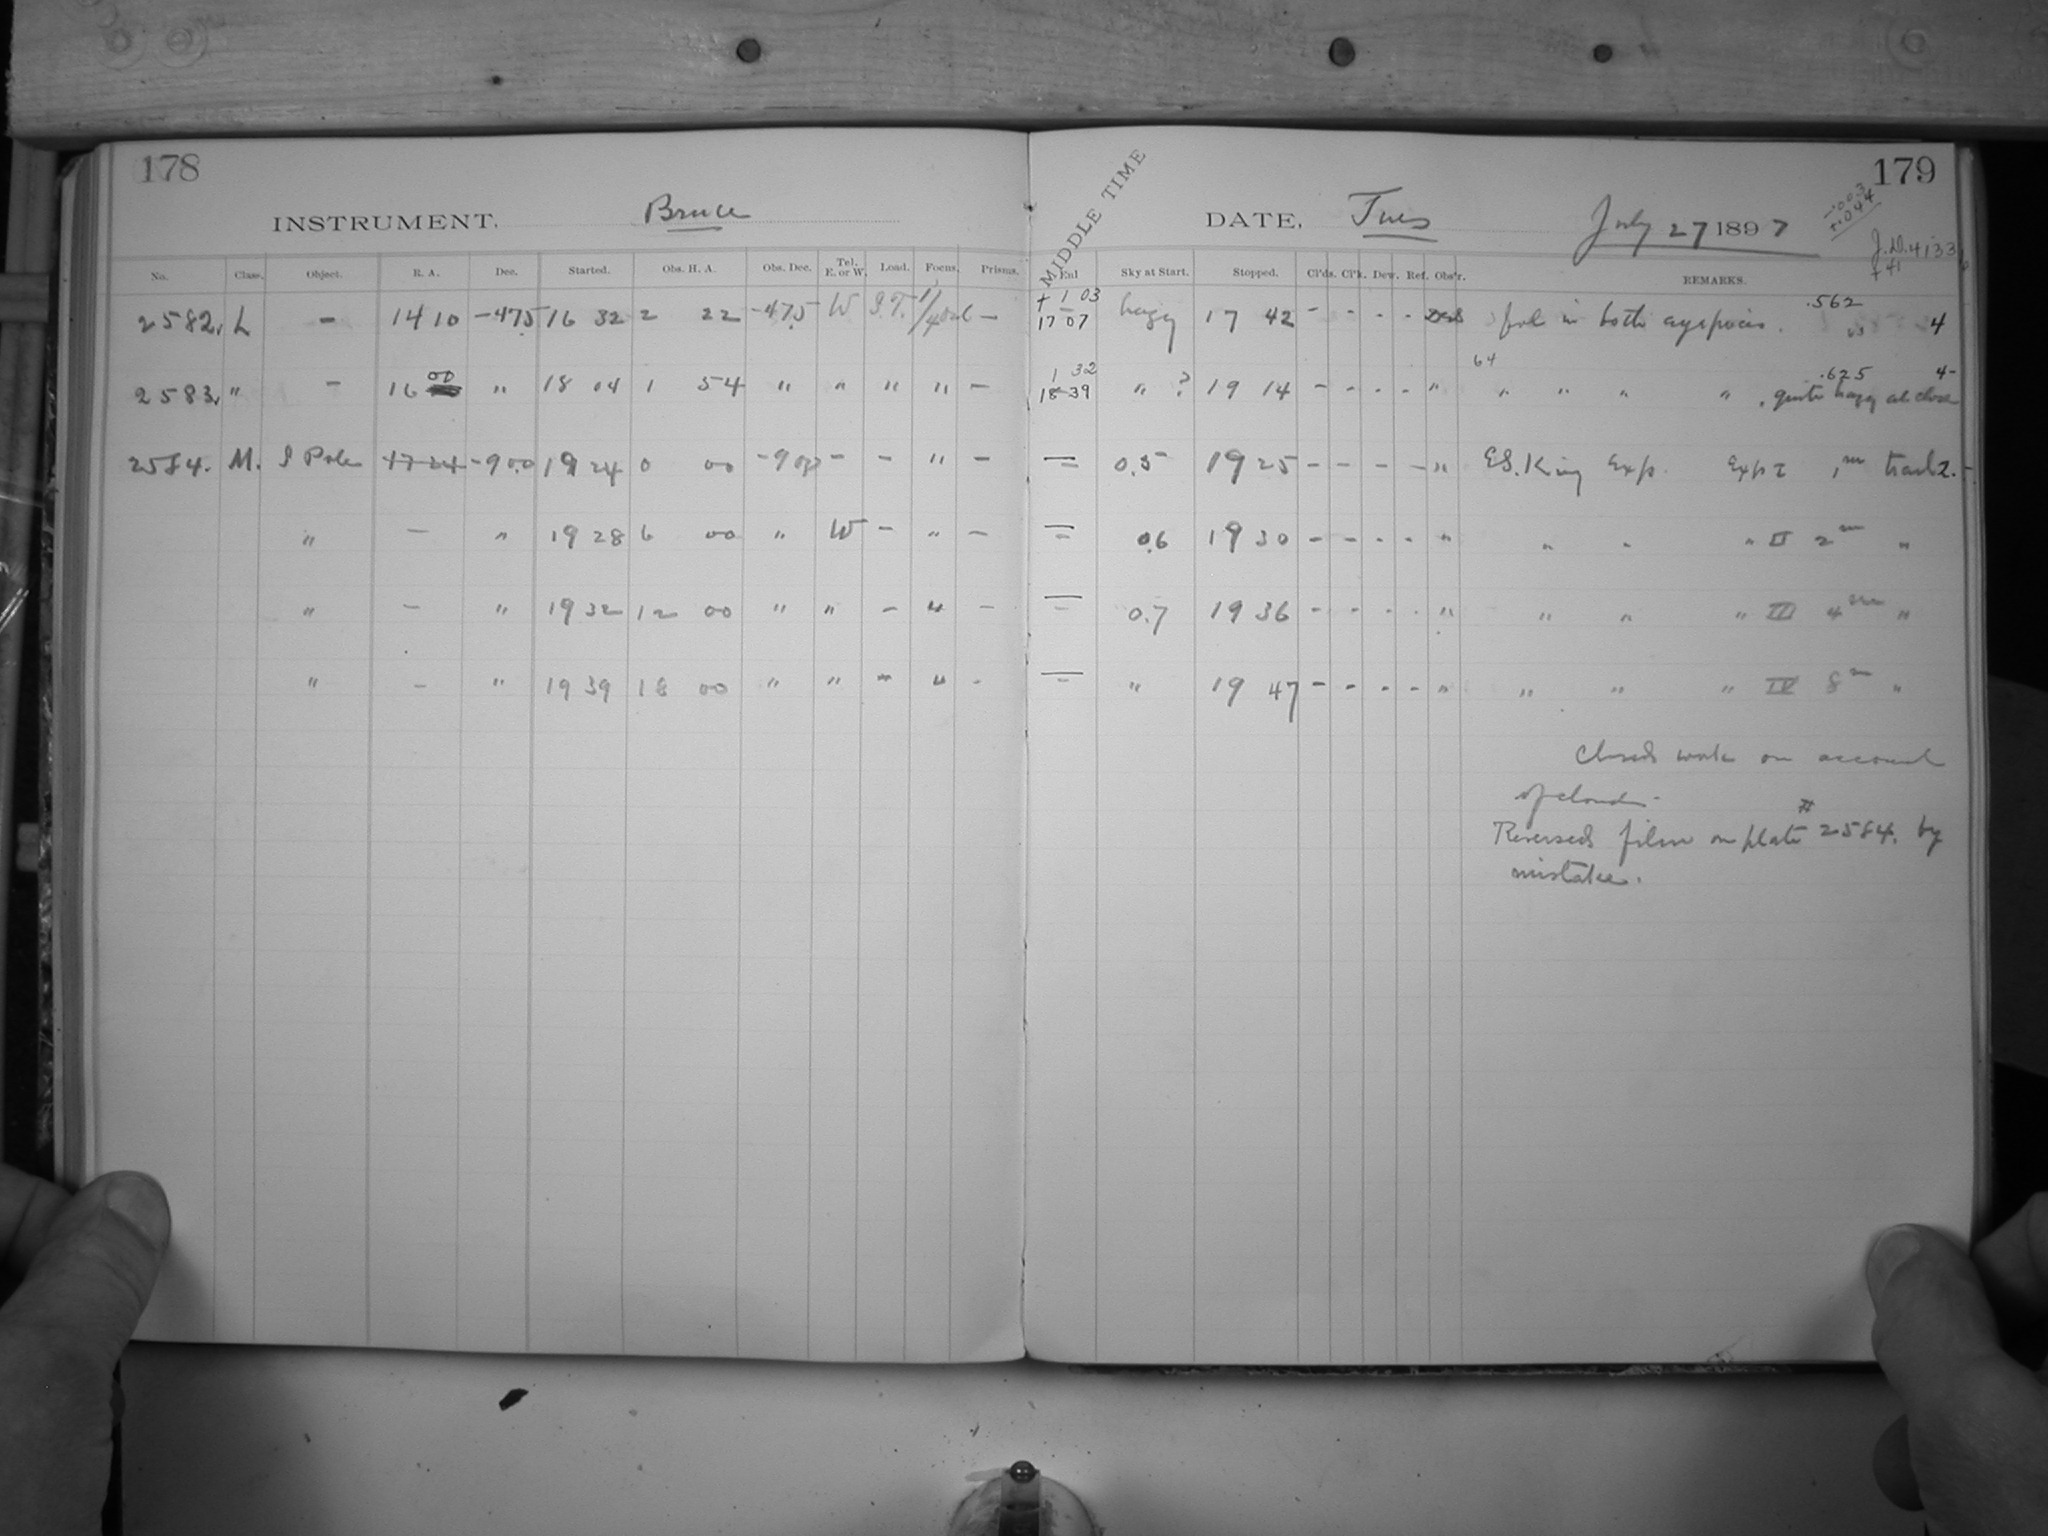 178
INSTRUMENT. Bruce
No. Class. Object. R. A. Dec. Started. Obs. H. A. Obs. Dec. Tel. E. or W. Load. Focus. Prisms.
2582. L - 14 10 -47.5 16 32 2 22 -47.5 W S.T. -
2583. " - 16 00 " 18 04 1 54 " " " " -
2584. M. S Pole 17 24 -90.0 19 24 0 00 -90 - - " -
" - " 19 28 6 00 " W - " -
" - " 19 32 12 00 " " - " -
" - " 19 39 18 00 " " - " -
179
MIDDLE TIME
DATE, Tues July 27 1897
-.003
+.044
J.D. 4133
+41
Sky at Start. Stopped. Cl'ds. Cl'k. Dew. Ref. Obs'r. REMARKS.
+ 1 03
17 07 hazy 17 42 - - - - fol in both eyepieces. .562 4
1 32
18 39 " ? 19 14 - - - - " 64 " " " " , quite hazy at close .625 4-
- 0.5 19 25 - - - - " E.S. King Exp. Exp I 1m trail 2.-
- 0.6 19 30 - - - - " " " " II 2m "
- 0.7 19 36 - - - - " " " " III 4m "
- " 19 47 - - - - " " " " IV 8m "
Closed work on account
of clouds.
Reversed film on plate # 2584. by
mistake.